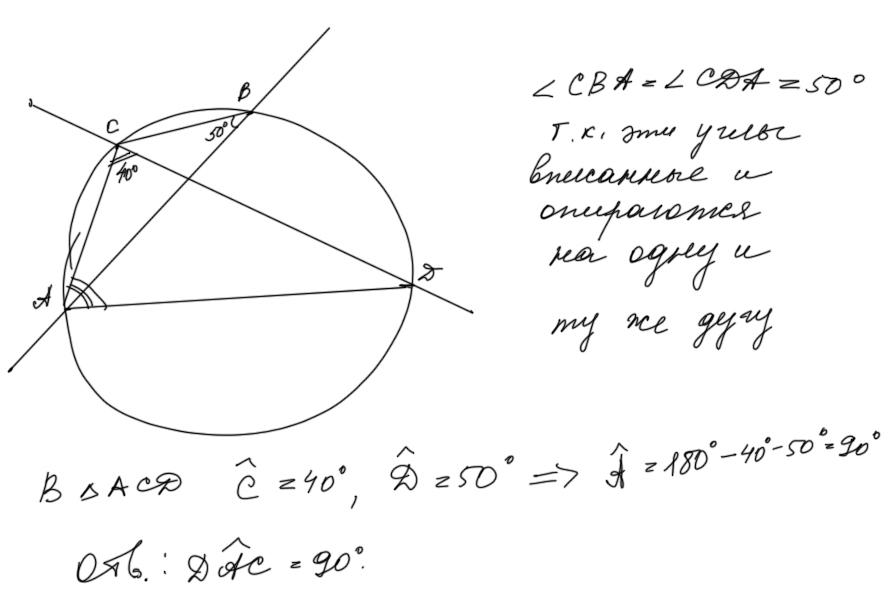 B
C
50°
40°
A
D
∠CBA = ∠CDA = 50°
т.к. эти углы
вписанные и
опираются
на одну и
ту же дугу
В △ACD Ĉ = 40°, D̂ = 50° => Â = 180° - 40° - 50° = 90°
Отв.: DÂC = 90°.